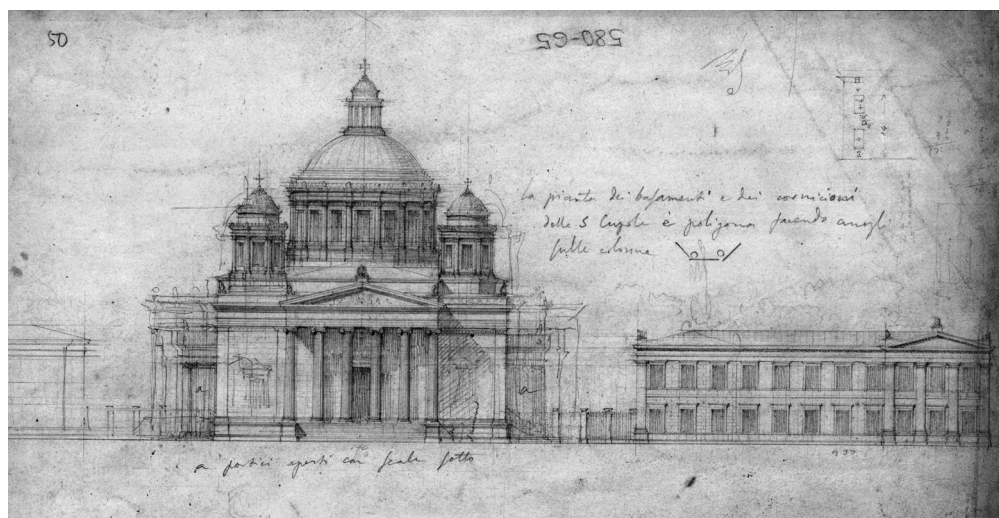 50
580-65
La pianta dei basamenti e dei cornicioni
delle 5 Cupole è poligona facendo angoli
sulle colonne
a
a
a portici aperti con scale sotto